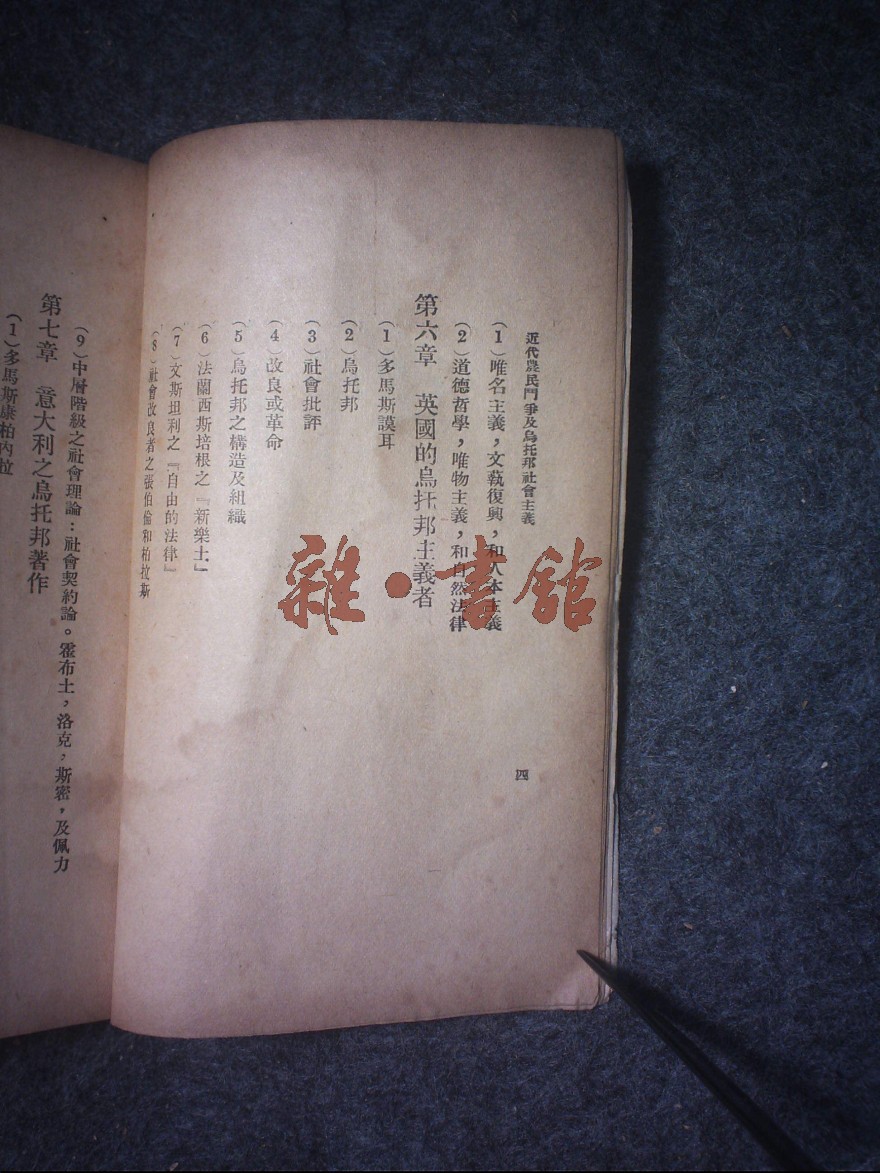 近代農民鬥爭及烏托邦社會主義
(1)唯名主義,文執復興,和人本主義
(2)道德哲學,唯物主義,和自然法律
第六章 英國的烏托邦主義者
(1)多馬斯謨耳
(2)烏托邦
(3)社會批評
(4)改良或革命
(5)烏托邦之構造及組織
(6)法蘭西斯培根之『新樂土』
(7)文斯坦利之『自由的法律』
(8)社會改良者之張伯倫和柏拉斯
四
(9)中層階級之社會理論:社會契約論。霍布士,洛克,斯密,及佩力
第七章 意大利之烏托邦著作
(1)多馬斯康柏內拉
雜·書館